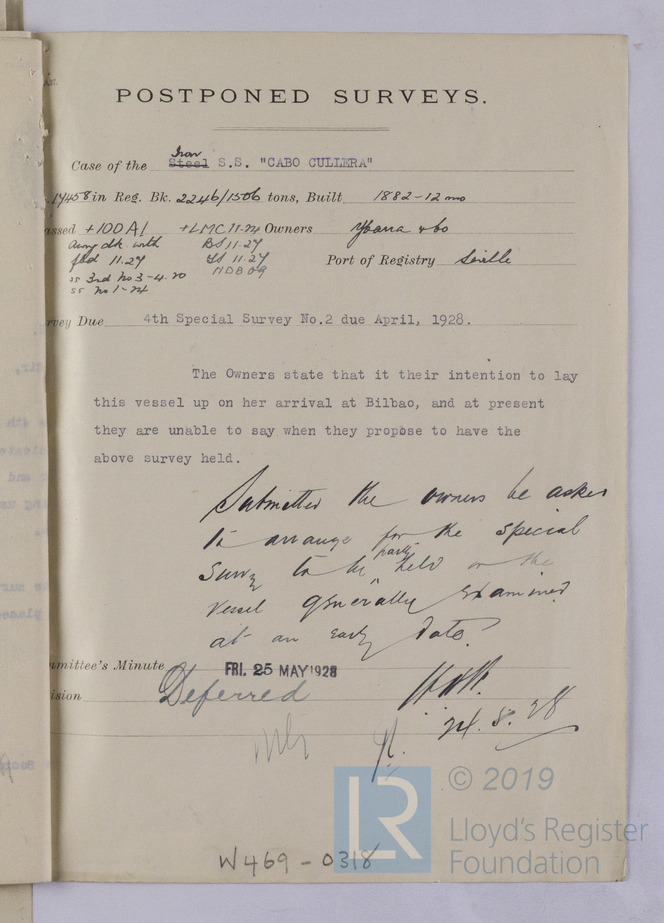 POSTPONED SURVEYS.
Case of the Iron Steel S.S. "CABO CULLERA"
17458 in Reg. Bk. 2246/1506 tons, Built 1882-12mo
assed +100A1 +LMC 11.24 Owners Ybarra & Co
Awng dk with BS 11.27
fbd 11.27 TS 11.27 Port of Registry Seville
SS 3rd No 3-4.20 NDB 09
SS No 1-24
rvey Due 4th Special Survey No.2 due April, 1928.
The Owners state that it their intention to lay
this vessel up on her arrival at Bilbao, and at present
they are unable to say when they propose to have the
above survey held.
Submitted the owners be asked
to arrange for the special
Survey to be partly held or the
vessel generally examined
at an early date.
mmittee's Minute FRI. 25 MAY 1928
ision Deferred
24.5.28
W469-0318
LR
© 2019
Lloyd's Register
Foundation